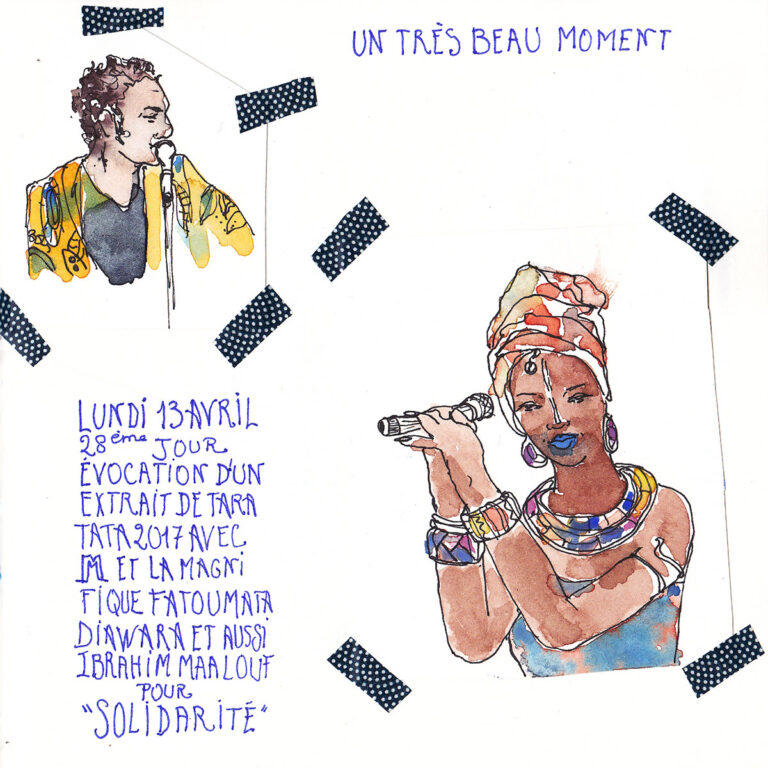 UN TRÈS BEAU MOMENT
LUNDI 13 AVRIL
28ème JOUR
ÉVOCATION D'UN
EXTRAIT DE TARA
TATA 2017 AVEC
M ET LA MAGNI
FIQUE FATOUMATA
DIAWARA ET AUSSI
IBRAHIM MAALOUF
POUR
"SOLIDARITÉ"